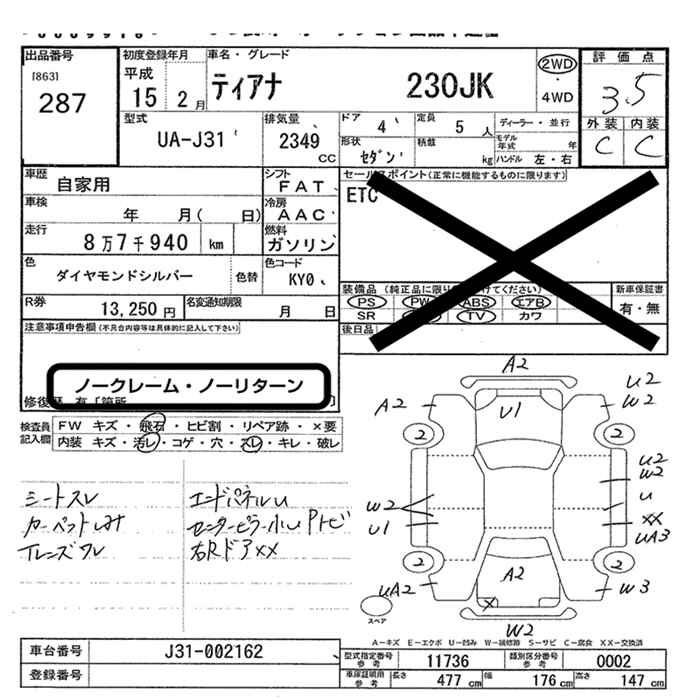 出品番号
[863]
287
初度登録年月
平成
15 2 月
車名・グレード
ティアナ 230JK
2WD
4WD
評価点
3.5
外装 内装
C C
型式
UA-J31
排気量
2349
CC
ドア
4
定員
5 人
ディーラー・並行
モデル年式 年
形状
セダン
積載
kg
ハンドル 左・右
車歴
自家用
シフト
FAT
セールスポイント(正常に機能するものに限ります)
ETC
車検
年 月( 日)
冷房
AAC
走行
8万7千940 km
燃料
ガソリン
色
ダイヤモンドシルバー
色替
色コード
KY0
装備品 (純正品に限り
けてください)
PS PW ABS エアB
SR TV カワ
新車保証書
有・無
R券
13,250 円
名変通知期限
月 日
後日品
注意事項申告欄 (不具合内容等は具体的に記入して下さい)
ノークレーム・ノーリターン
修復歴 有「箇所
検査員記入欄
FW キズ・飛石・ヒビ割・リペア跡・×要
内装 キズ・汚レ・コゲ・穴・スレ・キレ・破レ
シートスレ
カーペットしみ
エンドパネルU
センターピラー小U Pトビ
右Rドア××
A2
A2
U1
U2
W2
2
2
U2
W2
U
W2
U1
××
UA3
2
2
UA2
A2
×
W3
W2
スペア
A-キズ E-エクボ U-凹み W-補修跡 S-サビ C-腐食 XX-交換済
車台番号
J31-002162
登録番号
型式指定番号
参考
11736
類別区分番号
参考
0002
車庫証明用
参考
長さ 477 cm
幅 176 cm
高さ 147 cm